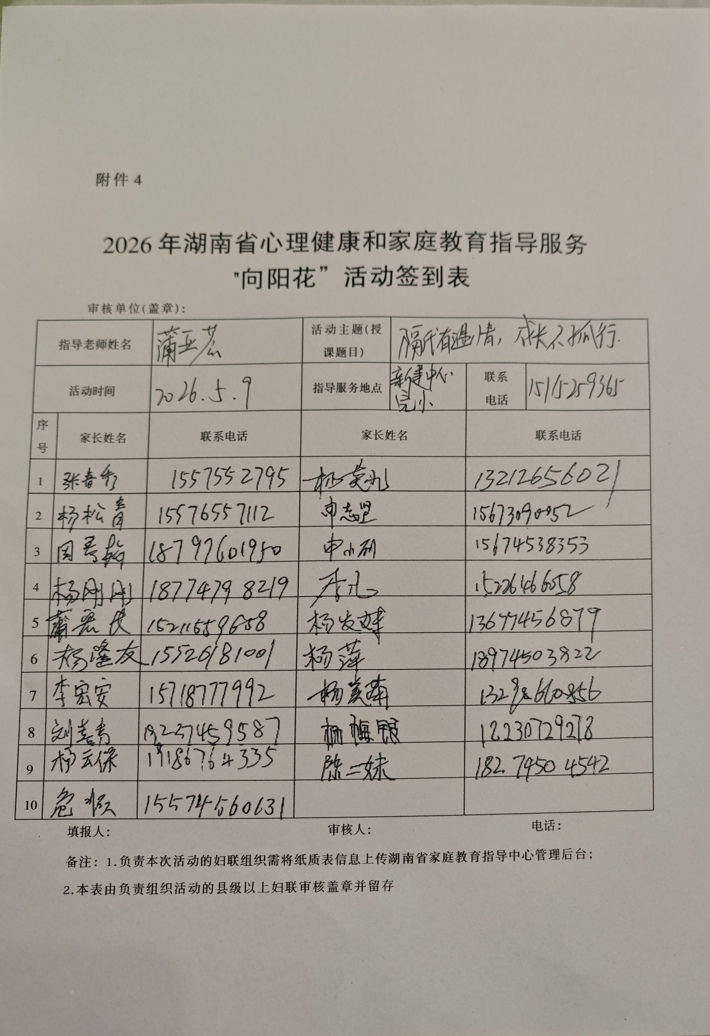 附件4
2026年湖南省心理健康和家庭教育指导服务
"向阳花”活动签到表
审核单位(盖章):
指导老师姓名 蒲亚宏 活动主题(授课题目) 隔代有温情，成长不孤行.
活动时间 2026.5.9 指导服务地点 新建中心完小 联系电话 15115259365
序号 家长姓名 联系电话 家长姓名 联系电话
1 张春香 15575552795 13212656021
2 杨松青 15576557112 申志星 15673090052
3 18797601950 申小利 15674538353
4 杨刚刚 18774798219 15226466058
5 15211559658 杨发莲 13677456879
6 杨隆友 15526181001 杨萍 18974503822
7 李宏安 15718777992 杨美南
8 刘喜秀 13227459587 18230729278
9 杨云保 19186764335 陈二妹 18279504542
10 危顺 15574560631
填报人: 审核人: 电话:
备注: 1.负责本次活动的妇联组织需将纸质表信息上传湖南省家庭教育指导中心管理后台;
2.本表由负责组织活动的县级以上妇联审核盖章并留存